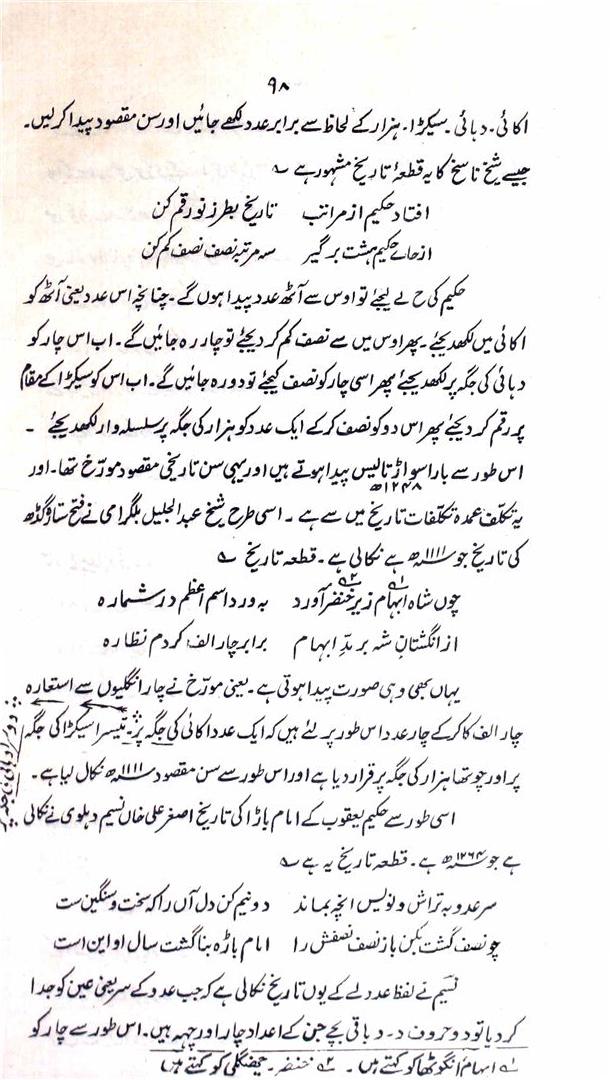 ۹۸
اکائی۔ دہائی۔ سیکڑا۔ ہزار کے لحاظ سے برابر عدد لکھے جائیں اور سن مقصود پیدا کرلیں۔
جیسے شیخ ناسخ کا یہ قطعۂ تاریخ مشہور ہے ؎
افتاد حکیم از مراتب تاریخ بطرز نو رقم کن
از حاے حکیم ہشت برگیر سہ مرتبہ نصف نصف کم کن
حکیم کی ح لے لیجئے تو اوس سے آٹھ عدد پیدا ہوں گے۔ چنانچہ اس عدد یعنی آٹھ کو
اکائی میں لکھدیجئے۔ پھر اوس میں سے نصف کم کر دیجئے تو چار رہ جائیں گے۔ اب اس چار کو
دہائی کی جگہ پر لکھدیجئے پھر اسی چار کو نصف کیجئے تو دو رہ جائیں گے۔ اب اس کو سیکڑا کے مقام
پر رقم کر دیجئے پھر اس دو کو نصف کرکے ایک عدد کو ہزار کی جگہ پر سلسلہ وار لکھدیجئے۔
اس طور سے بارا سو اڑتالیس پیدا ہوتے ہیں اور یہی سن تاریخی مقصود مورّخ تھا۔ اور
۱۲۴۸ھ
یہ تکلّف عمدہ تکلفات تاریخ میں سے ہے۔ اسی طرح شیخ عبدالجلیل بلگرامی نے فتح ستاؤگڈھ
کی تاریخ جو ۱۱۱۱ھ ہے نکالی ہے۔ قطعہ تاریخ ؎
چوں شاہ ابہام۱ زیر خنصر۲ آورد بہ ورد اسم اعظم در شمارہ
از انگشتانِ شہ بر مدِّ ابہام برابر چار الف کردم نظارہ
یہاں بھی وہی صورت پیدا ہوتی ہے۔ یعنی مورّخ نے چار انگلیوں سے استعارہ
چار الف کا کرکے چار عدد اس طور پر لئے ہیں کہ ایک عدد اکائی کی جگہ پر۔ تیسرا سیکڑا کی جگہ
دوسرا دہائی کی جگہ پر
پر اور چوتھا ہزار کی جگہ پر قرار دیا ہے اور اس طور سے سن مقصود ۱۱۱۱ھ نکال لیا ہے۔
اسی طور سے حکیم یعقوب کے امام باڑا کی تاریخ اصغر علی خاں نسیم دہلوی نے نکالی
ہے جو ۱۲۶۴ھ ہے۔ قطعہ تاریخ یہ ہے ؎
سر عدو بہ تراش و نویس انچہ بماند دو نیم کن دل آں را کہ سخت و سنگین ست
چو نصف گشت بکن باز نصف نصفش را امام باڑہ بنا گشت سال او این است
نسیم نے لفظ عدد لے کے یوں تاریخ نکالی ہے کہ جب عدد کے سر یعنی عین کو جدا
کر دیا تو دو حروف د۔ و باقی بچے جن کے اعداد چار اور چھہ ہیں۔ اس طور سے چار کو
۱؎ ابہام انگوٹھا کو کہتے ہیں۔ ۲؎ خنصر۔ چھنگلی کو کہتے ہیں